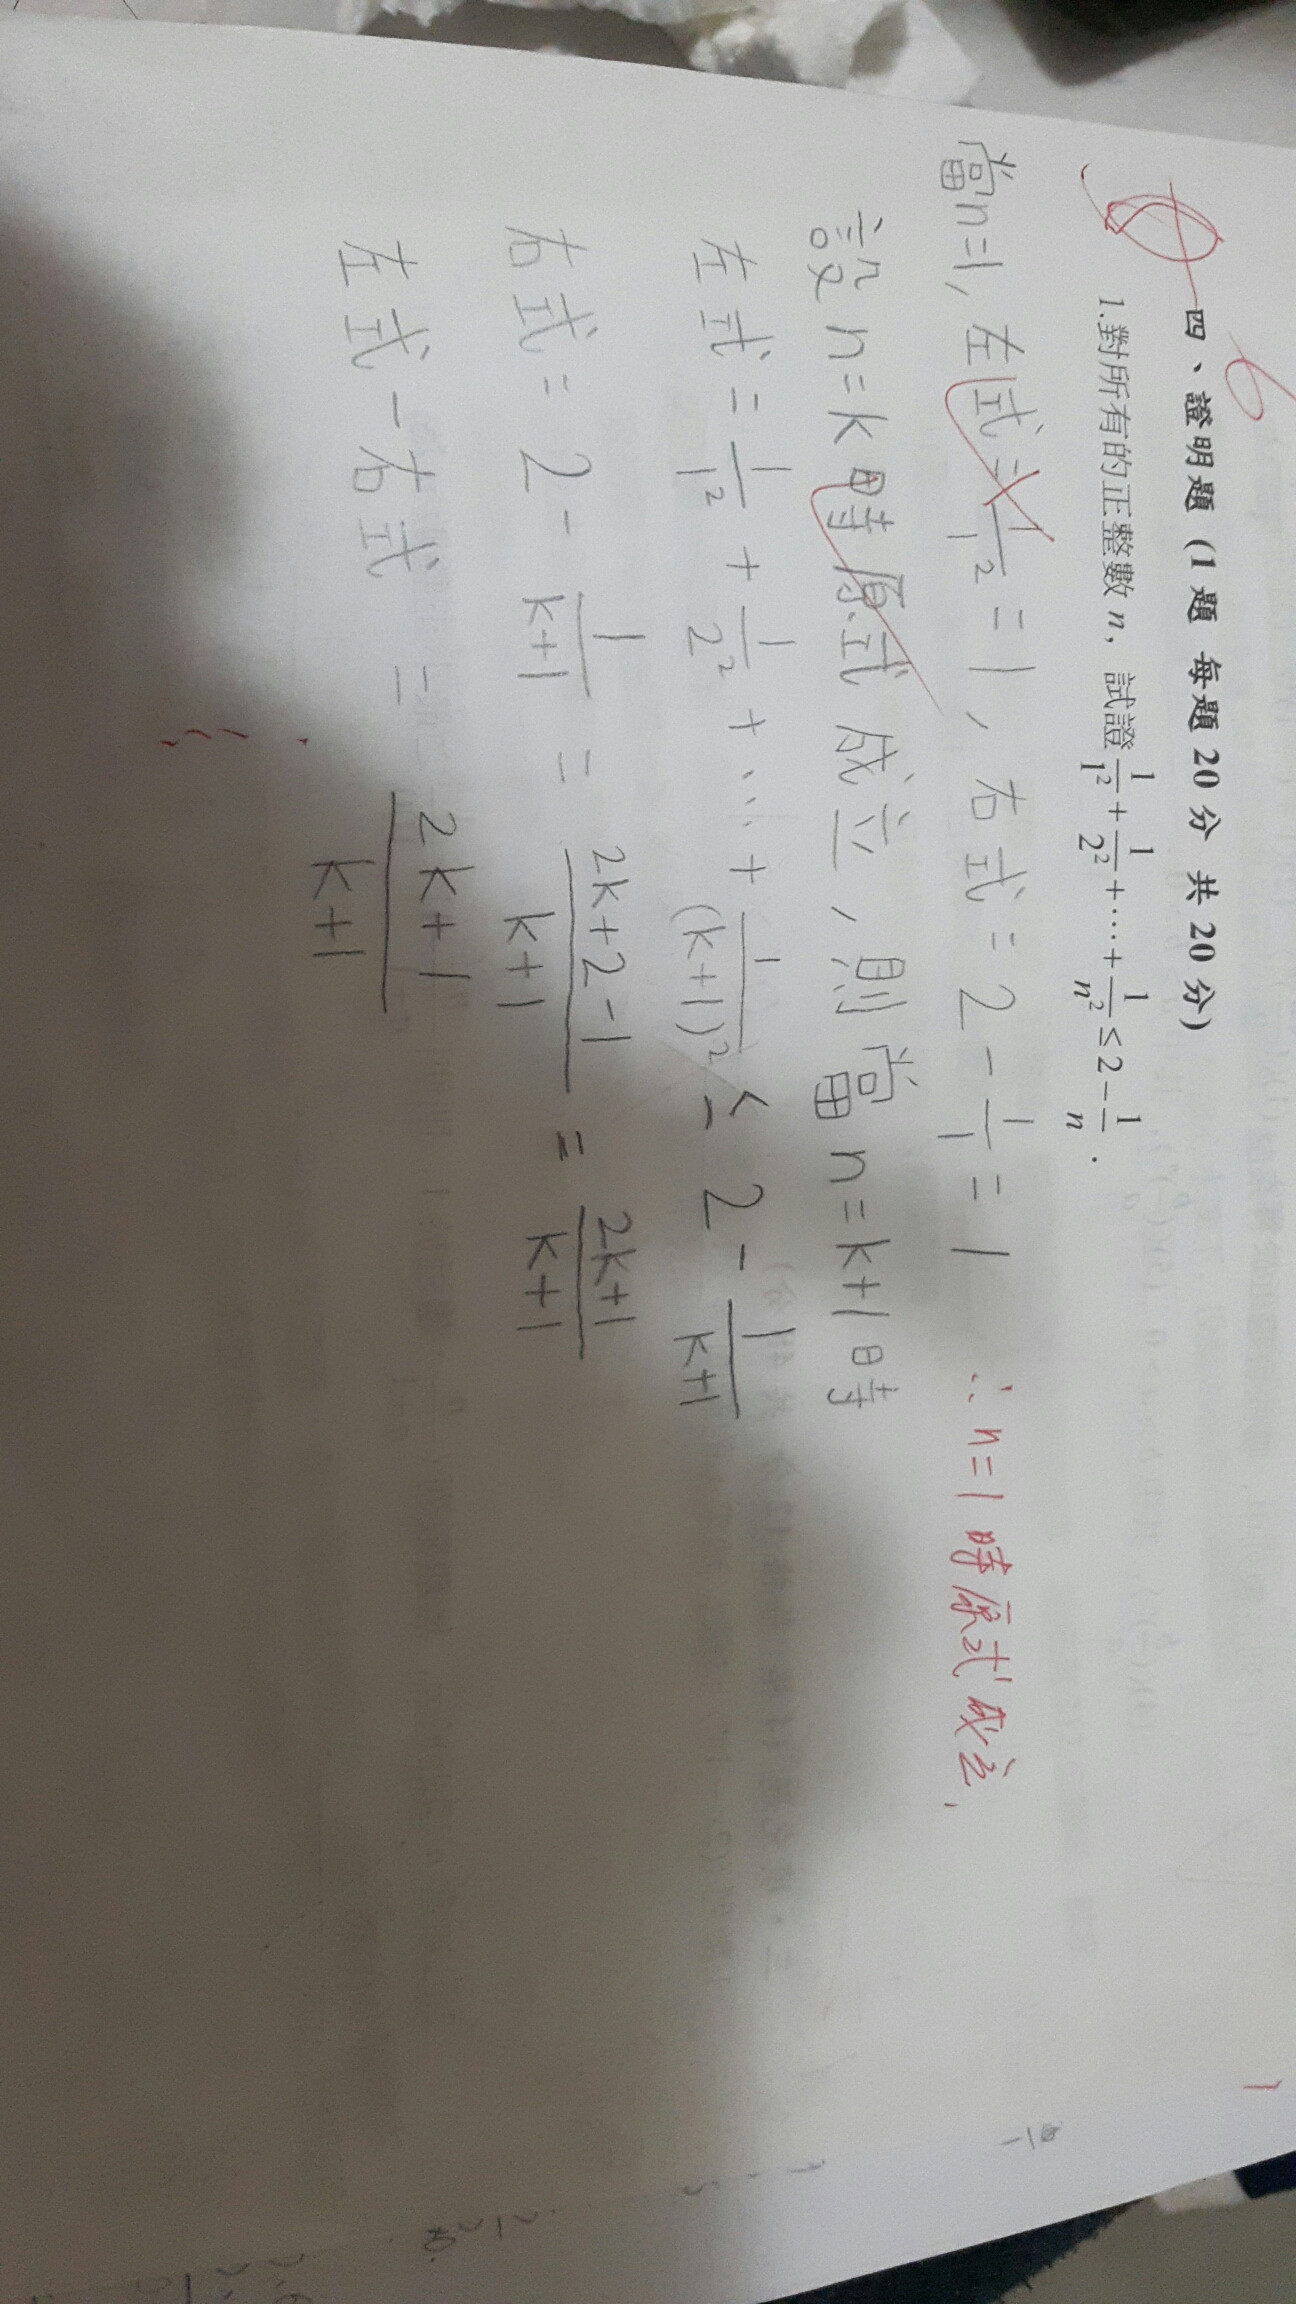 6
四、證明題 (1 題 每題 20 分 共 20 分)
1.對所有的正整數 n，試證 1/1² + 1/2² + ⋯ + 1/n² ≤ 2 − 1/n .
當n=1, 左式=1/1²=1, 右式=2-1/1=1 ∴n=1時原式成立,
設n=k時原式成立,則當n=k+1時
左式=1/1²+1/2²+⋯+1/(k+1)² ≤ 2-1/(k+1)
右式=2-1/(k+1) = (2k+2-1)/(k+1) = (2k+1)/(k+1)
左式-右式 = (2k+1)/(k+1)